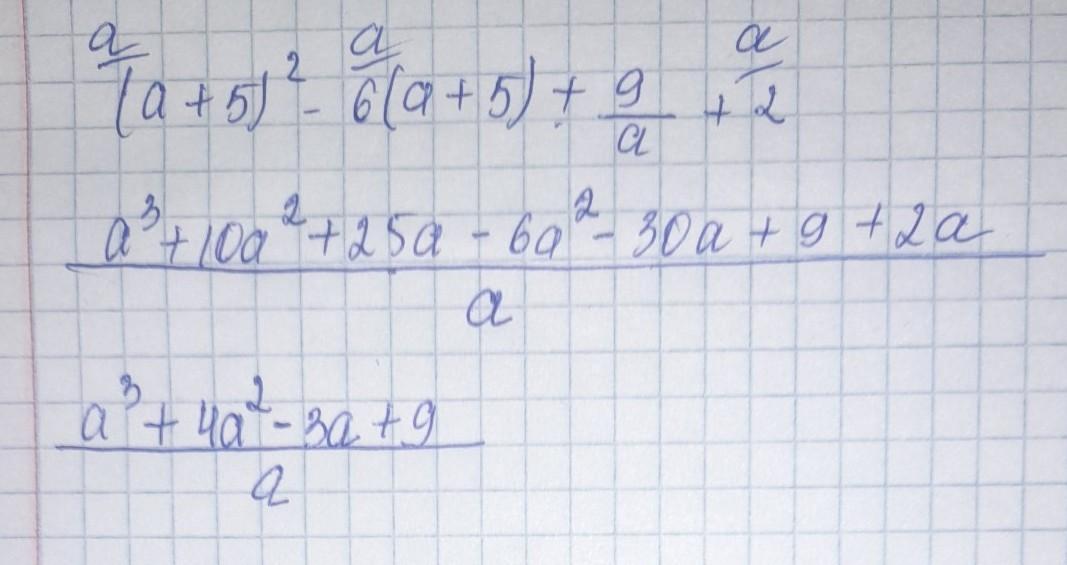 a a a
(a+5)² - 6(a+5) + 9/a + 2
a³+10a²+25a-6a²-30a+9+2a
a
a³+4a²-3a+9
a